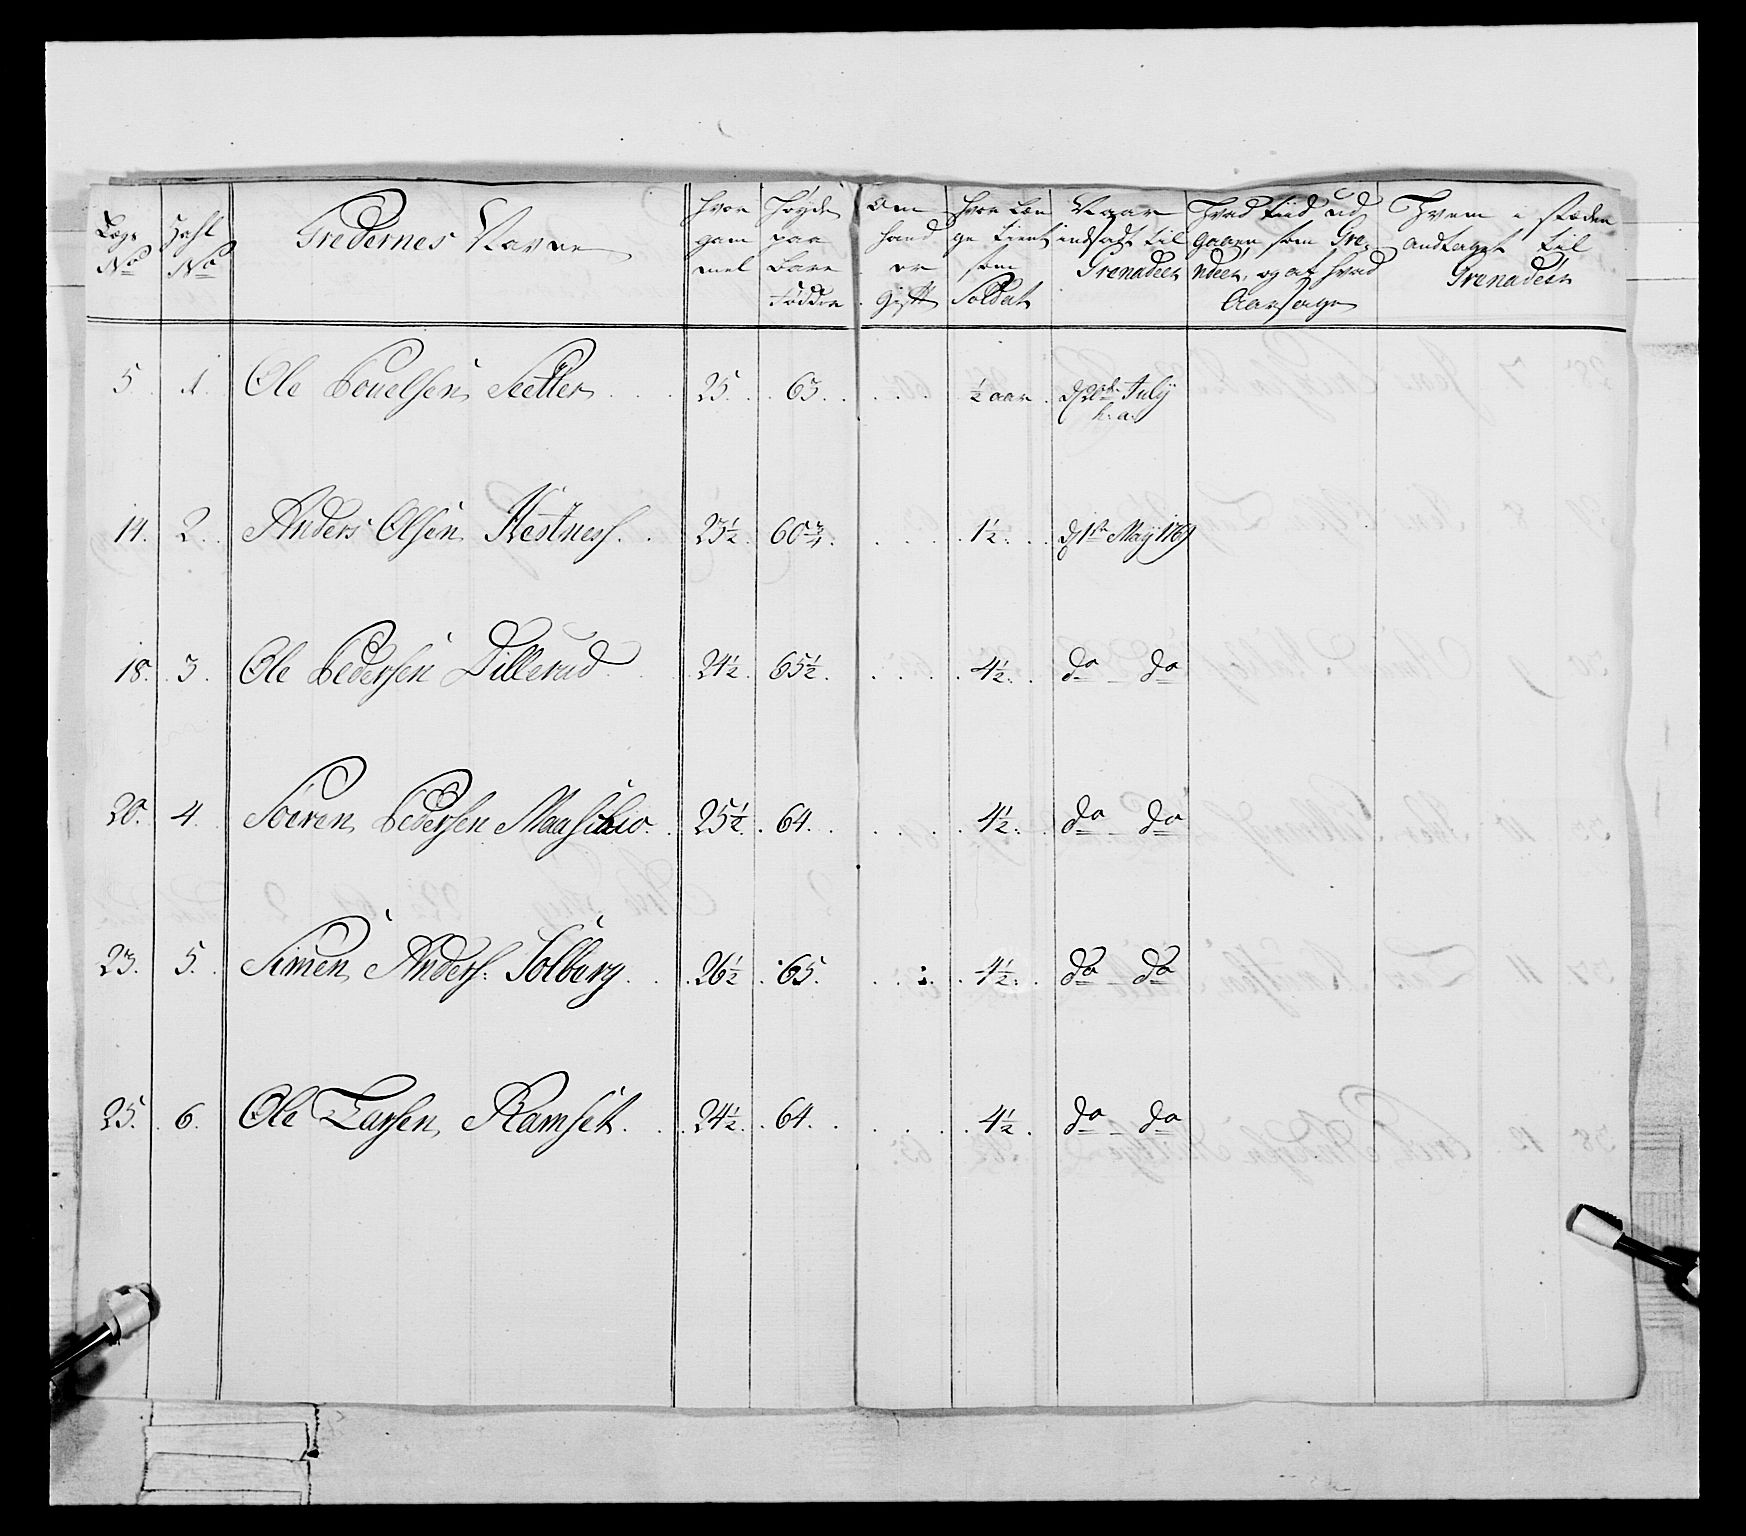 Lægs No | Zahl No | Gredernes Navne | Hvor gam mel | Høyde paa bare Fødder | Om hand er gift | Hvor læn ge tient som Soldat | Naar indsadt til Grenadeer | Hvad tiid ud gaaen som Gre- nadeer, og af hvad Aarsage | Hvem i stæden andtaget til Grenadeer
5. | 1. | Ole Pouelsen Sætter | 25. | 63. | | ½ aar | July h: a:
14. | 2. | Anders Olsen Hestness. | 23½. | 60¾. | | 1½. | d 1st May 1769
18. | 3. | Ole Pedersen Dillerud. | 24½. | 65½. | | 4½. | do do
20. | 4. | Søeren Pedersen | 25½. | 64. | | 4½. | do do
23. | 5. | Simen Anders: Solberg. | 26½. | 65. | | 4½. | do do
25. | 6. | Ole Larsen Ramset. | 24½. | 64. | | 4½. | do do